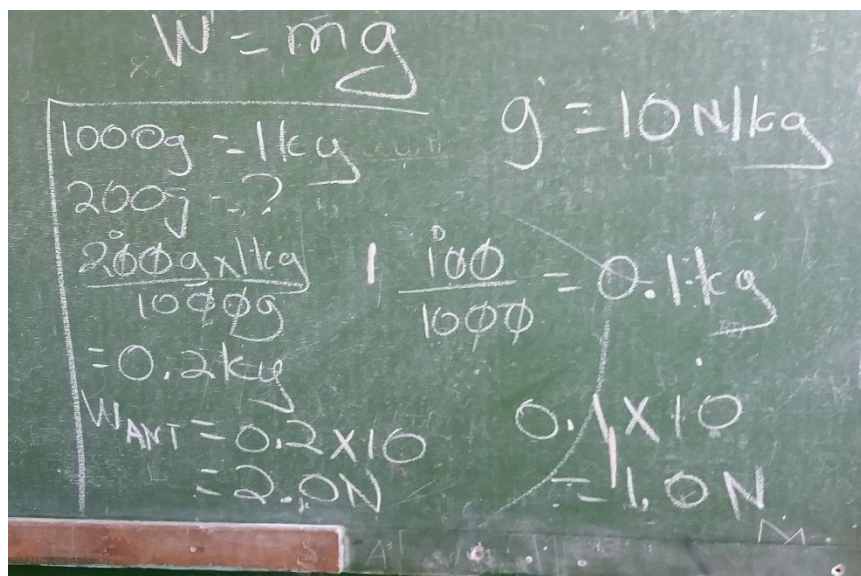 W = mg
g = 10 N/kg
1000g = 1kg
200g = ?
200g x 1kg
1000g
= 0.2kg
WANT = 0.2 x 10
= 2.0N
100
1000
= 0.1kg
0.1 x 10
= 1.0N